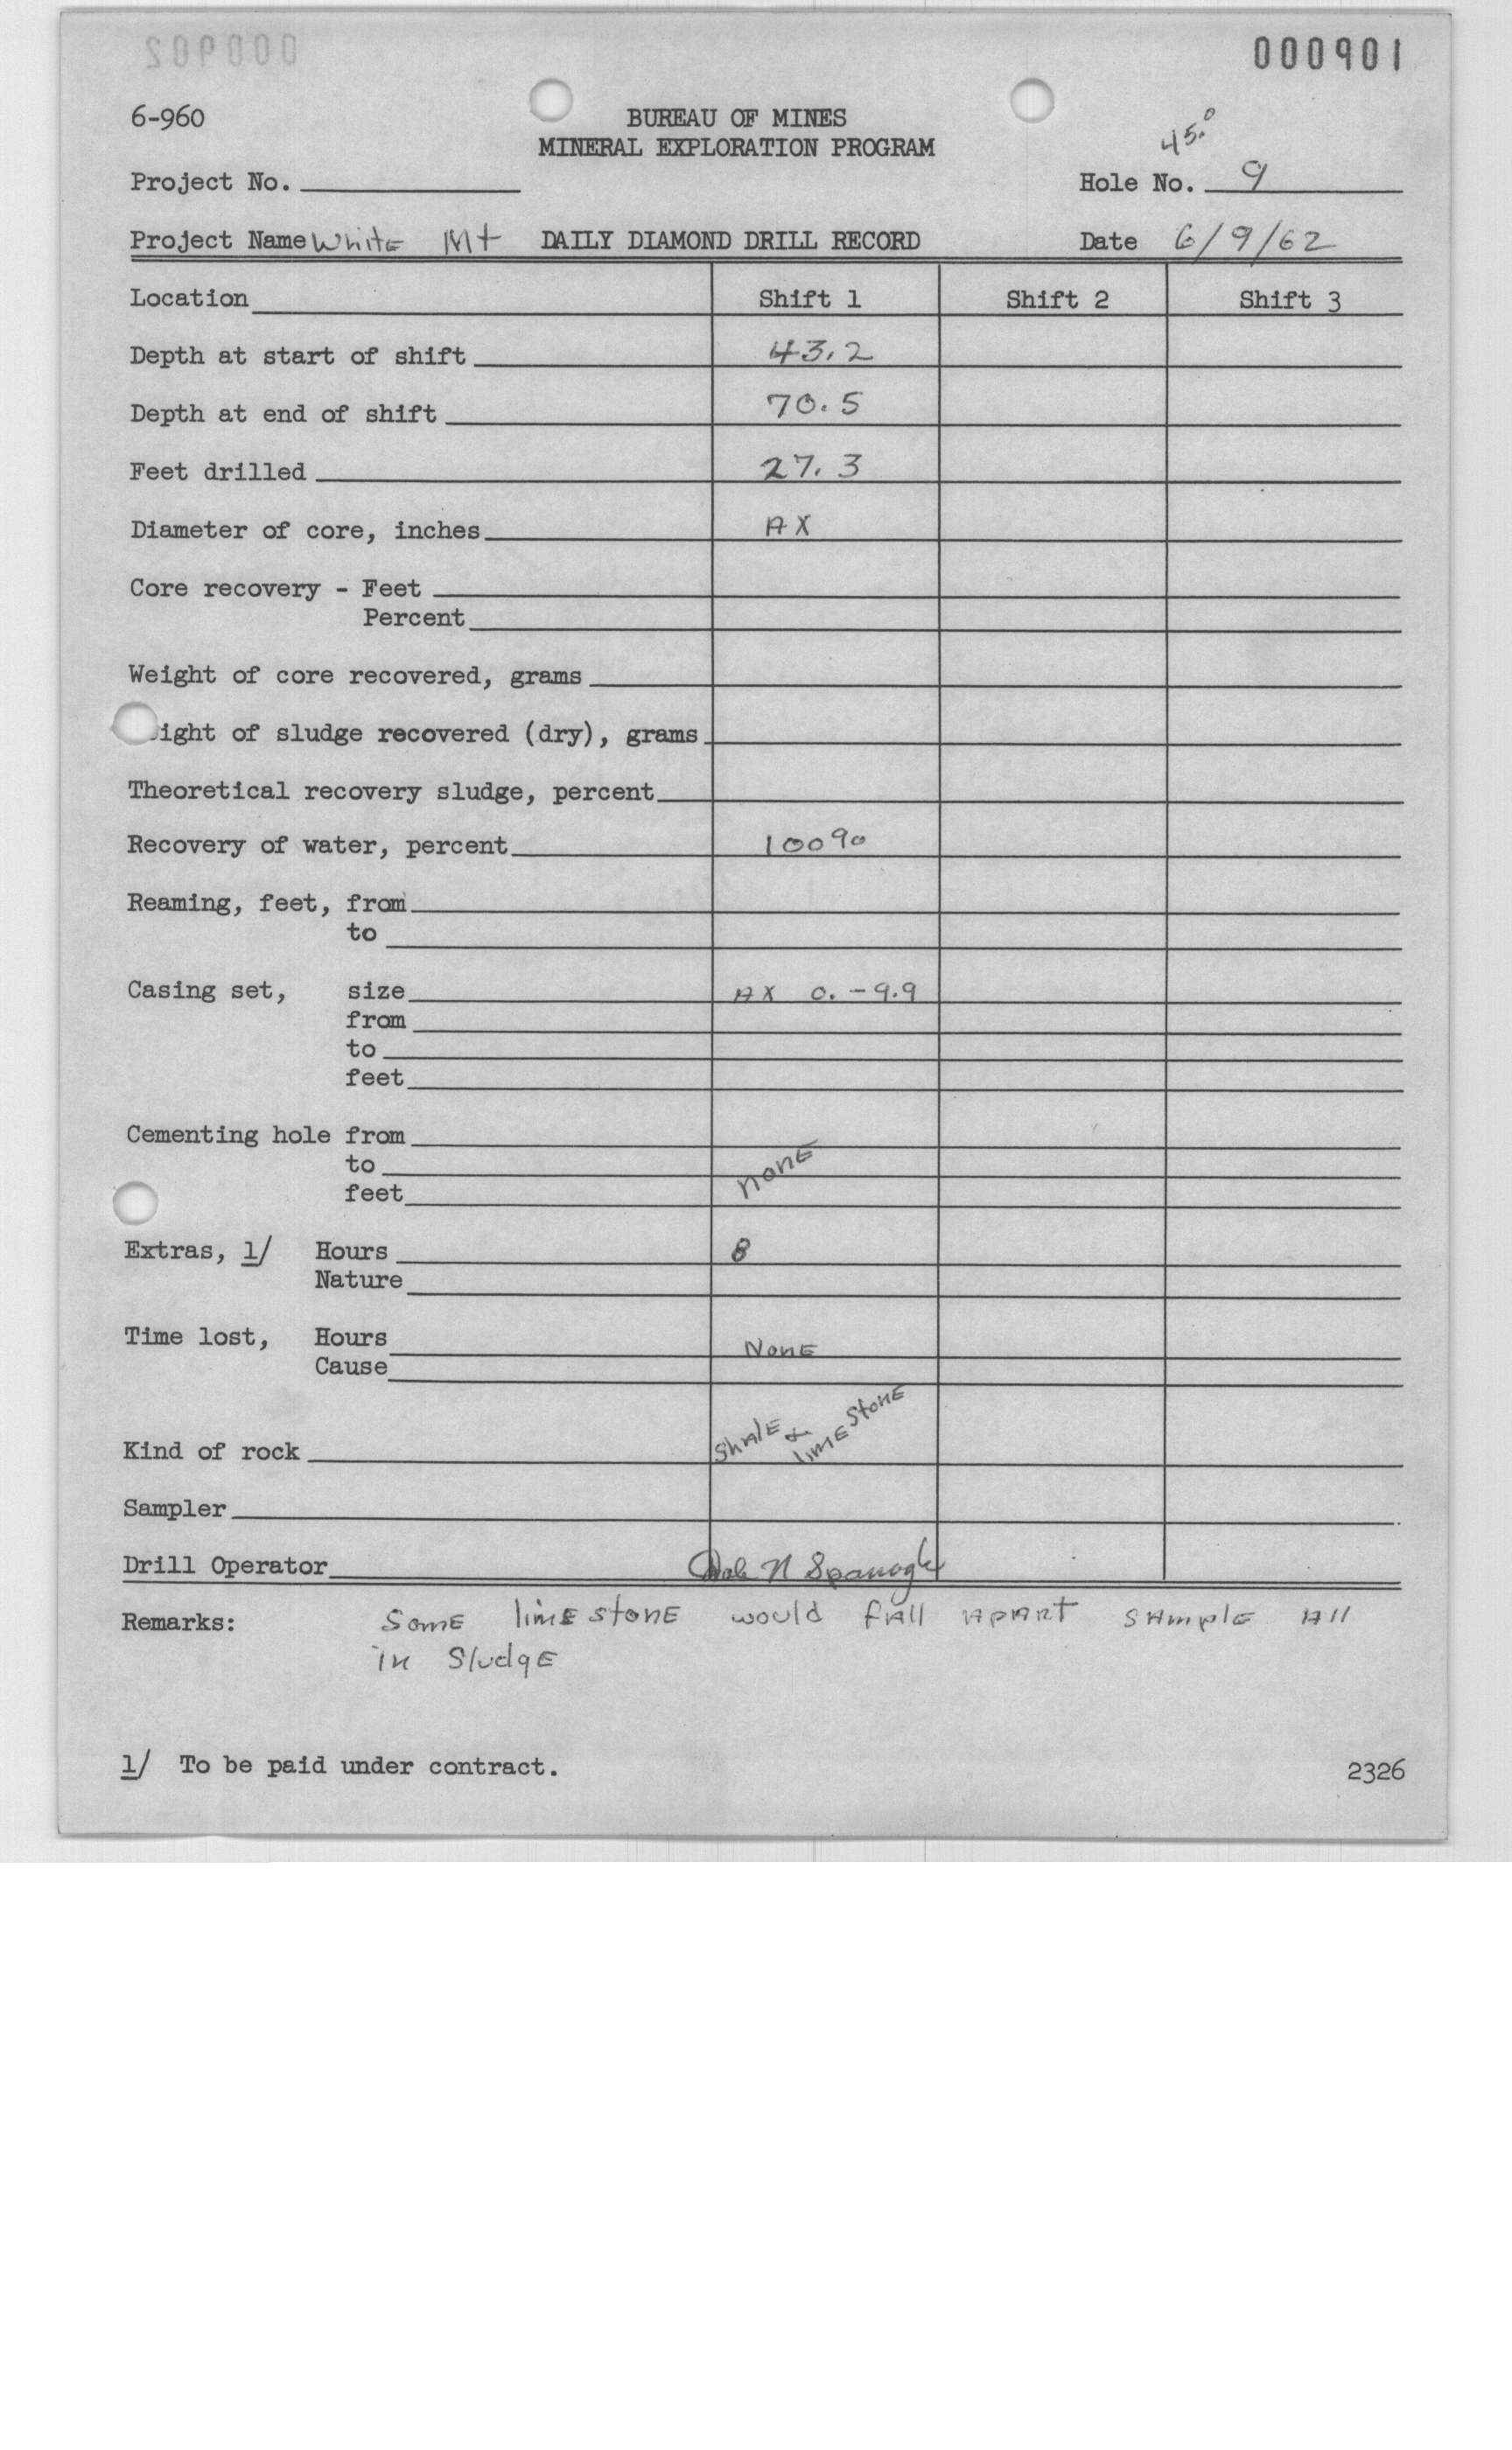 000902
000901
6-960
BUREAU OF MINES
MINERAL EXPLORATION PROGRAM
45.°
Project No.
Hole No. 9
Project Name White Mt DAILY DIAMOND DRILL RECORD Date 6/9/62
Location Shift 1 Shift 2 Shift 3
Depth at start of shift 43.2
Depth at end of shift 70.5
Feet drilled 27.3
Diameter of core, inches AX
Core recovery - Feet
Percent
Weight of core recovered, grams
ight of sludge recovered (dry), grams
Theoretical recovery sludge, percent
Recovery of water, percent 100%
Reaming, feet, from
to
Casing set, size AX 0. - 9.9
from
to
feet
Cementing hole from
to none
feet
Extras, 1/ Hours 8
Nature
Time lost, Hours None
Cause
Kind of rock Shale & limestone
Sampler
Drill Operator Dale N Spanogle
Remarks: Some limestone would fall apart sample all
in sludge
1/ To be paid under contract.
2326